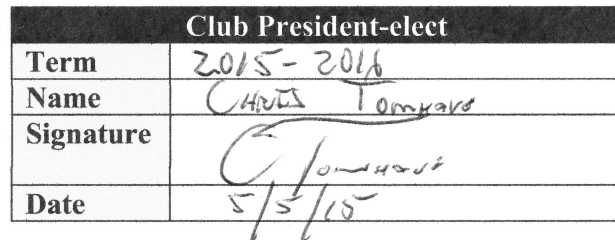 Club President-elect
Term 2015-2016
Name Chris Tomhave
Signature C Tomhave
Date 5/5/15